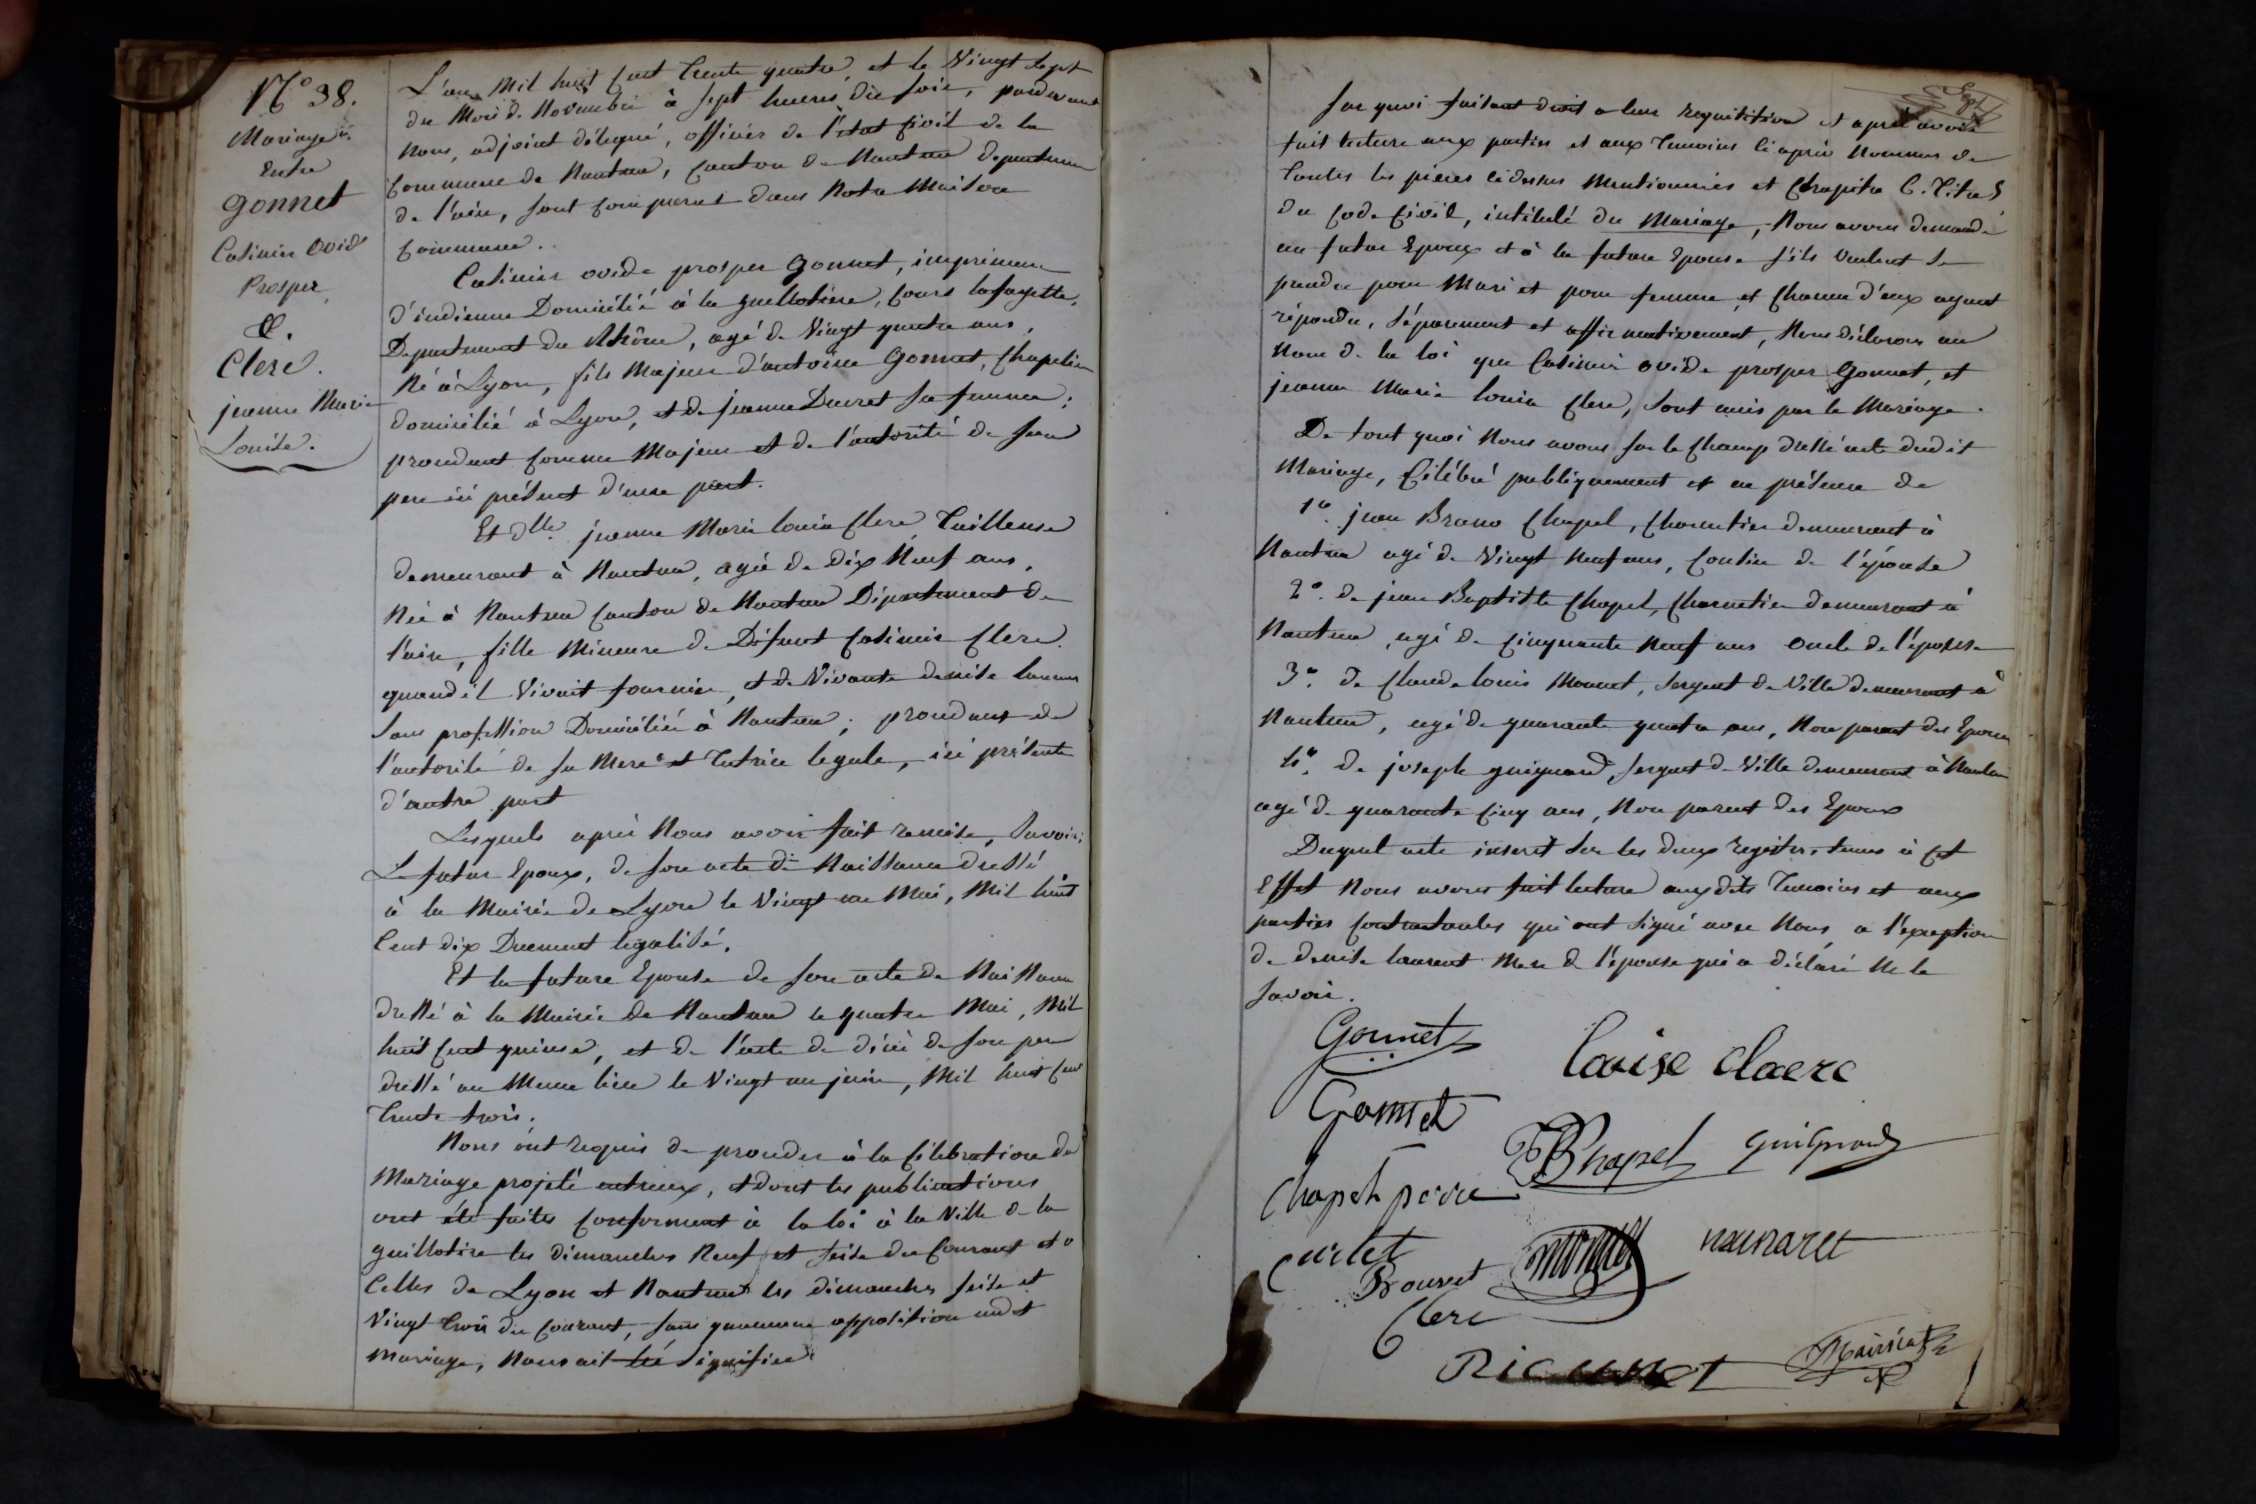 N.º 38.
Mariage
Entre
Gonnet
Casimir Ovide
Prosper
&.
Clerc.
jeanne Marie
Louise.
L'an Mil huit Cent trente quatre, et le Vingt Sept
du Mois de Novembre à Sept heures du soir, pardevant
Nous, adjoint délégué, officier de l'état Civil de la
Commune de Nantua, Canton de Nantua departement
de l'ain, sont comparut dans Notre Maison
Commune.
Casimir ovide prosper Gonnet, imprimeur
d'indienne Domicilié à la guillotière, Cours lafayette,
Departement du Rhône, agé de Vingt quatre ans,
Né à Lyon, fils Majeur d'antoine Gonnet, Chapelier
domicilié à Lyon, et de jeanne Ducret sa femme;
procedant comme Majeur et de l'autorité de son
pere ici présent d'une part.
Et dlle. jeanne Marie louise Clerc Tailleuse
demeurant à Nantua, agée de Dix Neuf ans,
Née à Nantua Canton de Nantua Département de
l'ain, fille Mineure de Défunt Casimir Clerc
quand il Vivait fournier, et de Vivante denise laurent
sans profession Domiciliée à Nantua; procedant de
l'autorité de sa Mere et Tutrice legale, ici présente
d'autre part
Lesquels après Nous avoir fait remise, Savoir:
Le futur Epoux, de son acte de Naissance dressé
à la Mairie de Lyon le Vingt un Mai, Mil huit
Cent dix Duement legalisé.
Et la future Epouse de son acte de Naissance
dressé à la Mairie de Nantua le quatre Mai, Mil
huit Cent quinze, et de l'acte de décès de son pere
dressé au Meme lieu le Vingt un juin, Mil huit Cent
Trente trois.
Nous ont requis de proceder à la Célébration du
Mariage projeté entreux, et dont les publications
ont été faites Conforment à la loi à la Ville de la
guillotière les dimanches Neuf et seize du Courant et
Celles de Lyon et Nantua les dimanches seize et
Vingt trois du Courant, sans quaucune opposition audt
mariage, Nous ait été Signifiée
Sur quoi faisant droit a leur requisition et après avoir
fait lecture aux parties et aux Temoins ci après Nommés de
Toutes les pieces cidessus Mentionnées et Chapitre 6. Titre 5
du Code Civil, intitulé du Mariage, Nous avons demandé
au futur Epoux et à la future Epouse s'ils veulent se
prendre pour Mari et pour femme, et Chacun d'eux ayant
répondu, Séparement et affirmativement, Nous déclarons au
Nom de la loi que Casimir ovide prosper Gonnet, et
jeanne Marie louise Clerc, sont unis par le Mariage.
De tout quoi Nous avons sur le Champ dressé acte dudit
Mariage, Célébré publiquement et en présence de
1º. jean Bruno Chapel, Charcutier demeurant à
Nantua agé de Vingt Neuf ans, Cousin de l'épouse
2º. de jean Baptiste Chapel, Charcutier demeurant à
Nantua, agé de Cinquante Neuf ans oncle de l'épouse
3º. de Claude louis Monnet, Sergent de Ville demeurant à
Nantua, agé de quarante quatre ans, Non parent des Epoux
4º. de joseph guignard, Sergent de Ville demeurant à Nantua
agé de quarante Cinq ans, Non parent des Epoux
Duquel acte inseret sur les deux registres tenus à Cet
Effet Nous avons fait lecture auxdits Temoins et aux
parties Contractantes qui ont Signé avec Nous, a l'exeption
de denise laurent Mere de l'épouse qui a déclaré Ne le
savoir.
Gonnet
Louise claerc
Gonnet
JBChapel guignard
Chapel pere
Curlet
Bouvet
monnet
Clerc
Mairiat